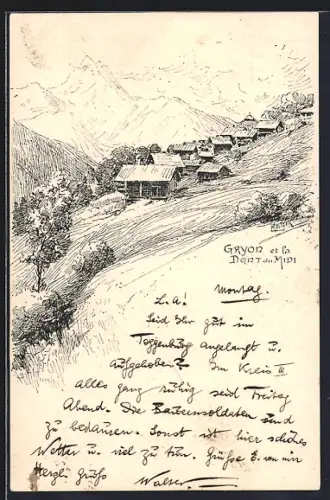 GRYON et la
DENT du MIDI
L. A! Montag.
Seid Ihr gut im
Toggenburg angelangt u.
aufgehoben? Im Kreis III
alles ganz ruhig seid Freitag
Abend. Die sind
zu bedauern. Sonst ist hier schönes
Wetter u. viel zu tun. Grüsse E. von mir
Herzl. Grüss
Walter